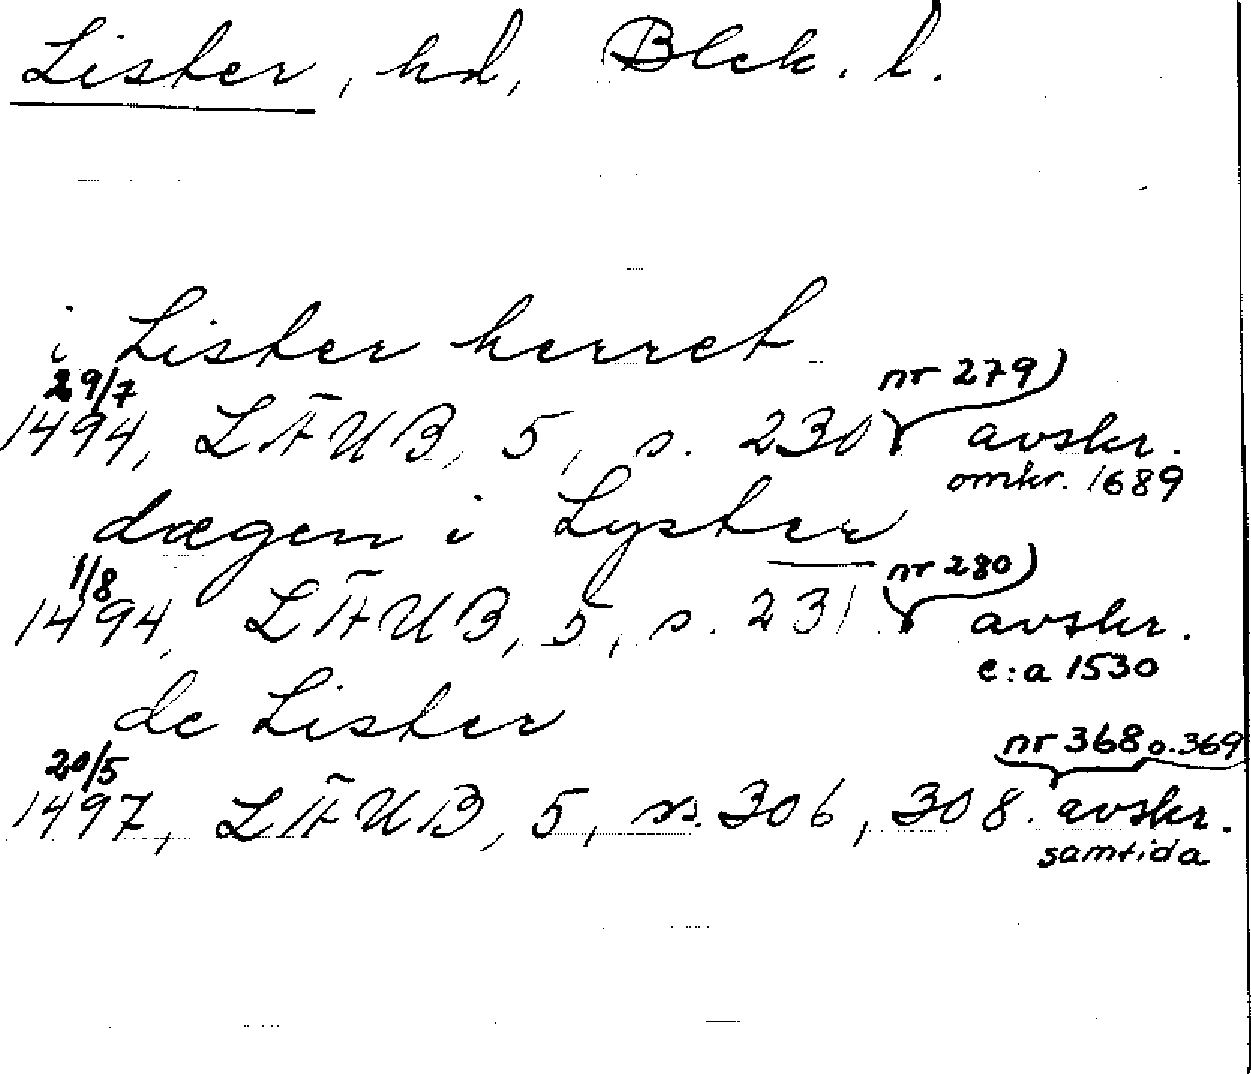 Lister, hd, Blek. l.
i Lister herret
29/7 nr 279)
1494, LÄUB, 5, s. 230 avskr.
omkr. 1689
dægen i Lyster
1/8 nr 280)
1494, LÄUB, 5, s. 231. avskr.
c:a 1530
de Lister
20/5 nr 368 o. 369
1497, LÄUB, 5, ss. 306, 308. avskr.
samtida